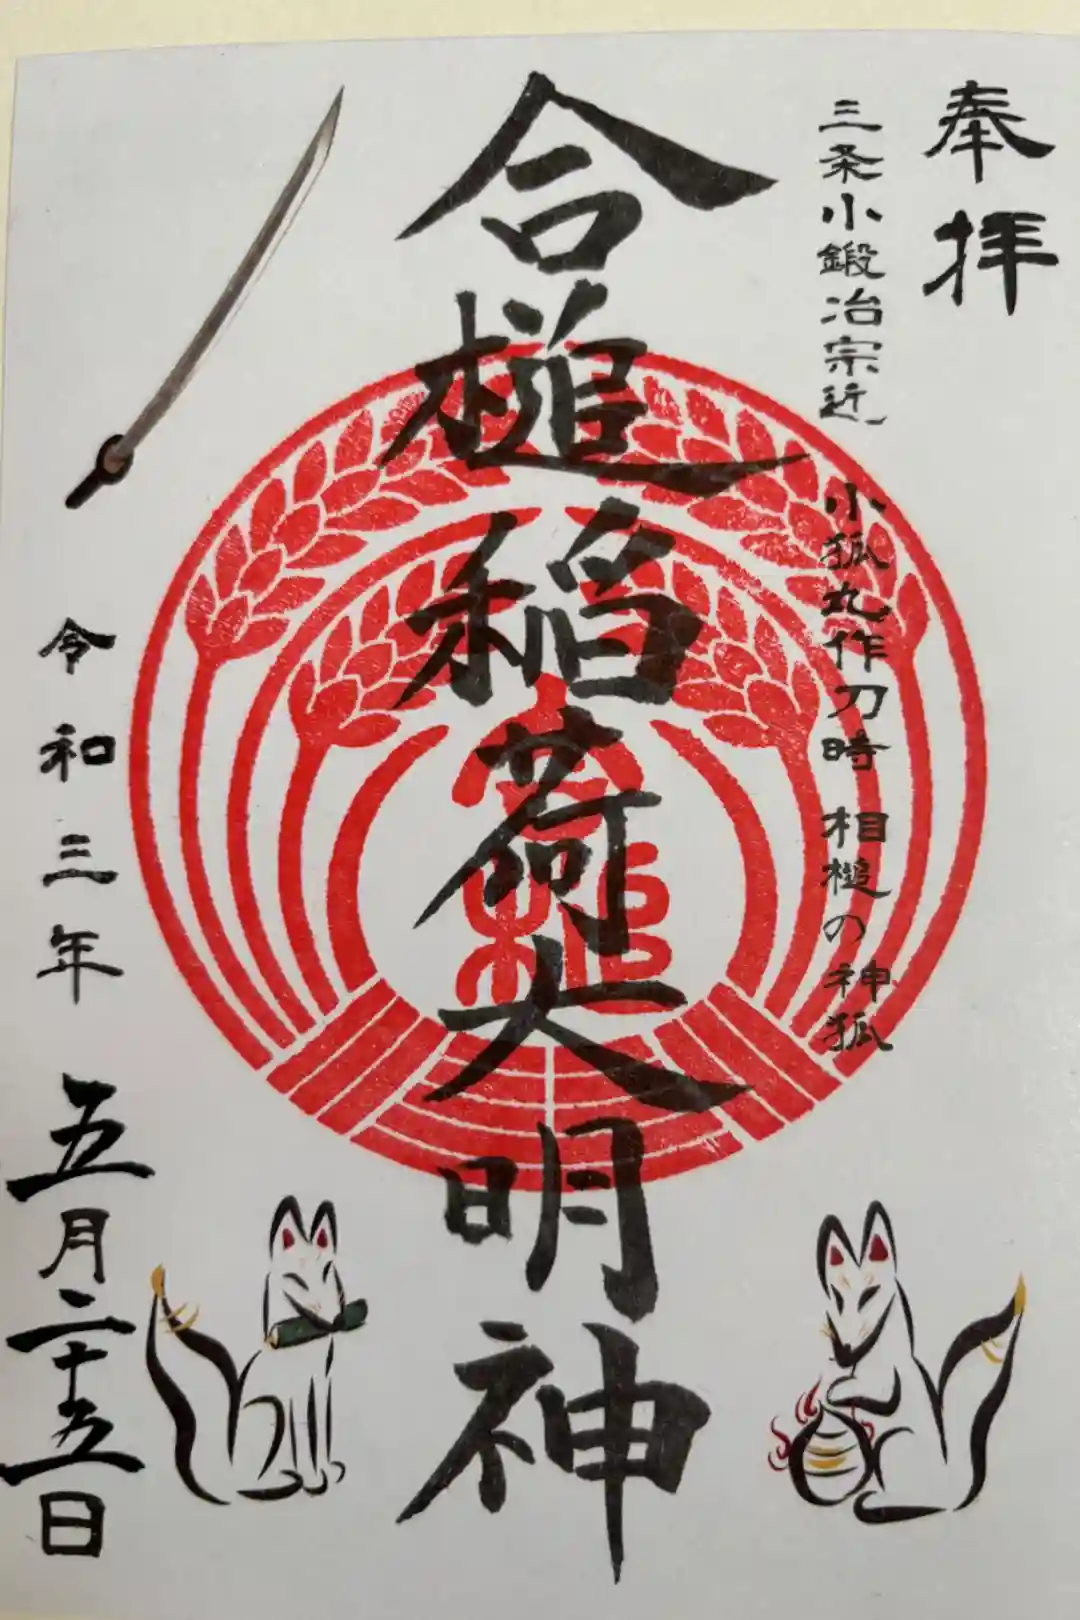 奉拝
三条小鍛冶宗近
小狐丸作刀時 相槌の神狐
合槌稲荷大明神
令和三年 五月二十五日